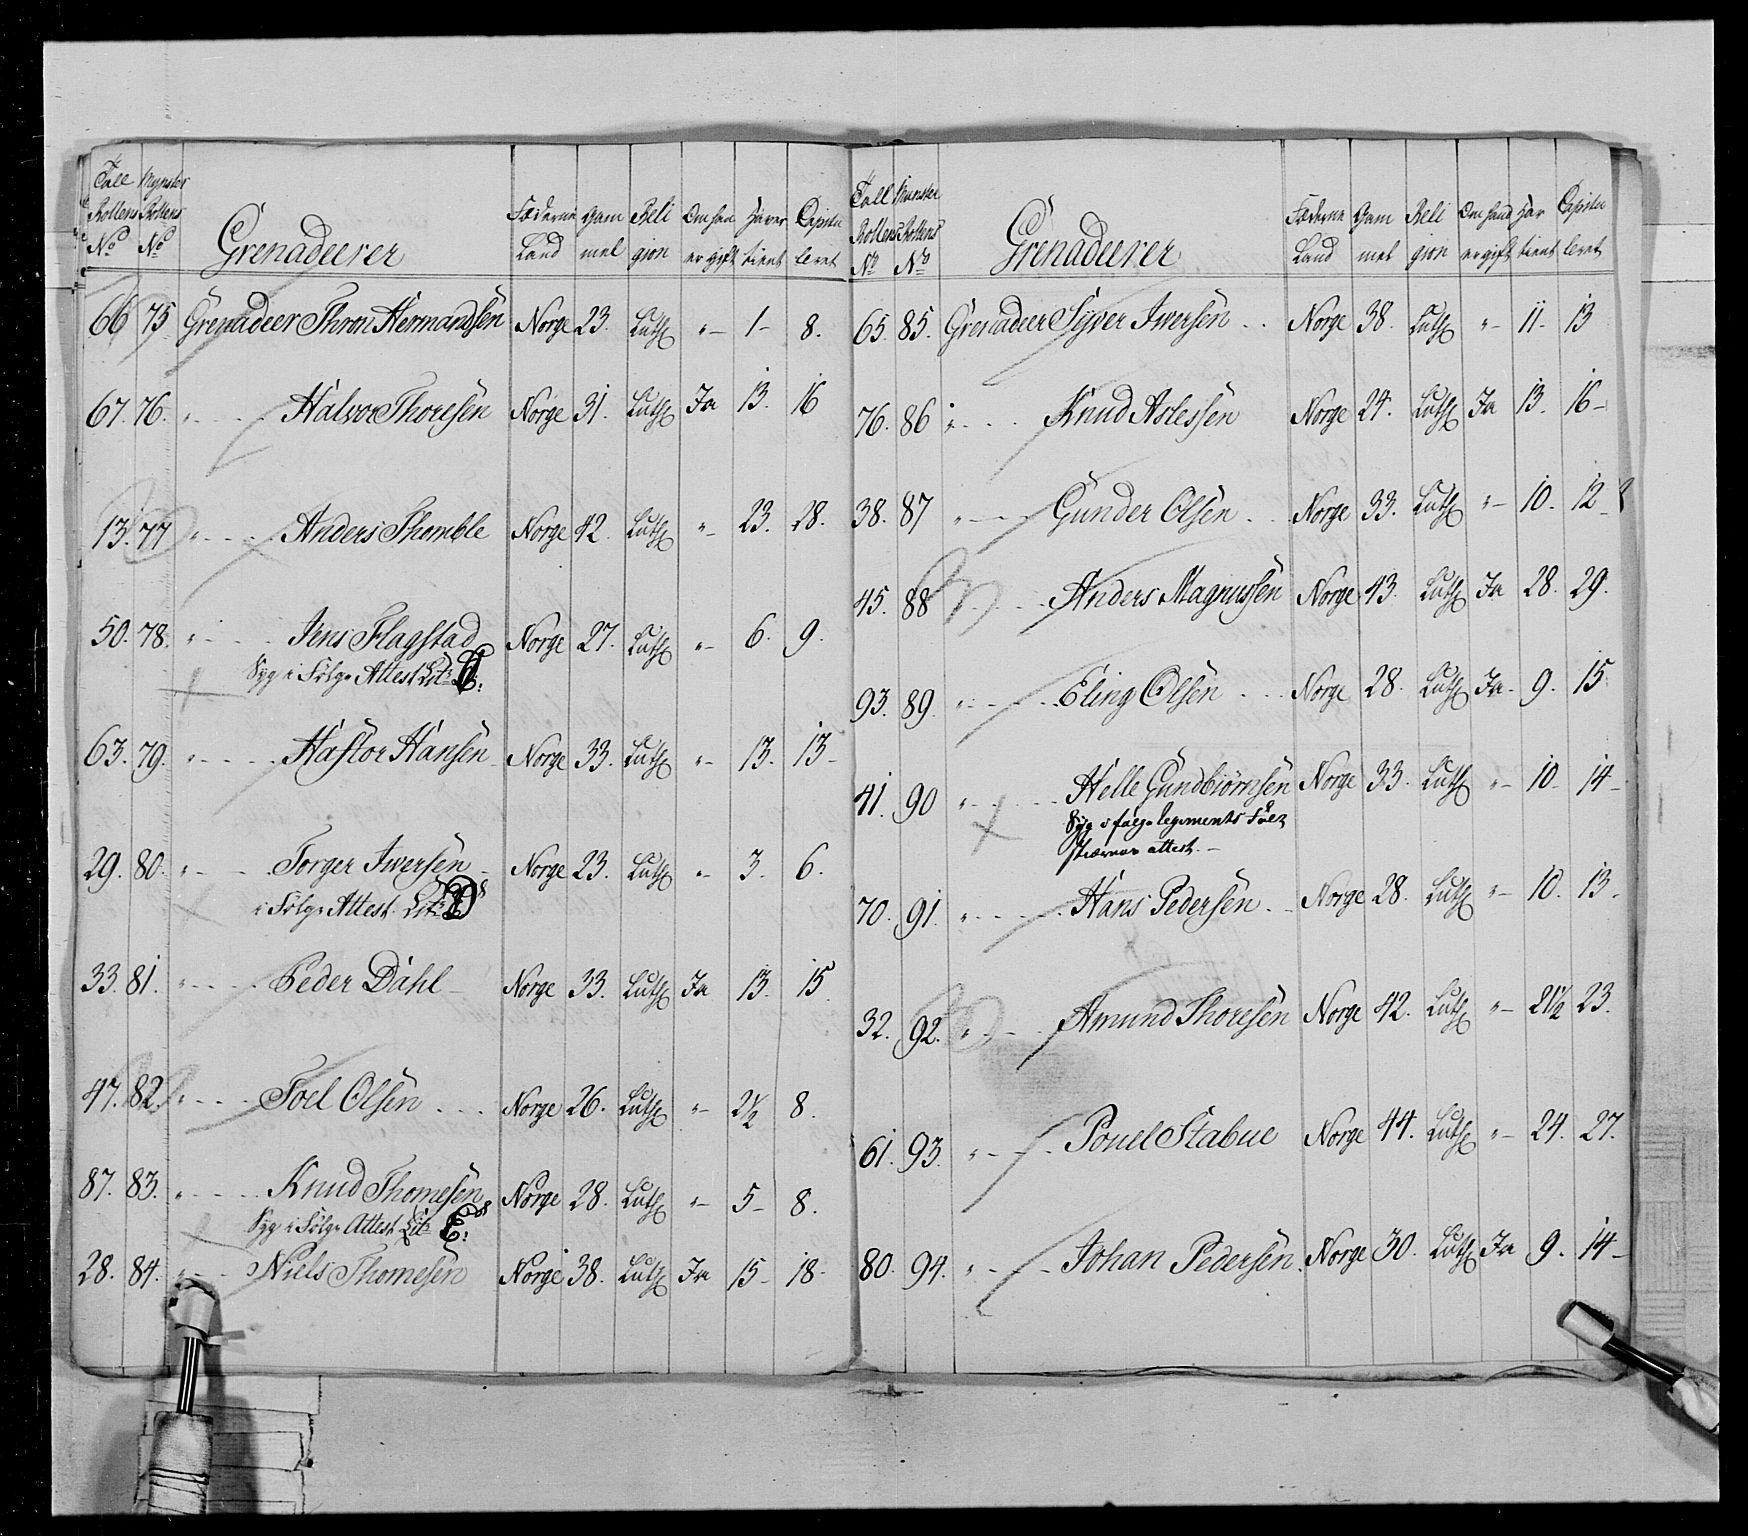 Tall Rollens No Mynster Rollens No Grenadeerer Fæderne Land Gam mel Reli gion Om han er gift Haver tient Capitu leret
66 75 Grenadeer Thron Hermandsen Norge 23. Luth " – 1 – 8.
67. 76. " Halvor Thoresen Norge 31. Luth Ja 13. 16
13. 77 " Anders Thomble Norge 42. Luth " 23. 28.
50. 78. " Jens Flagstad Norge 27. Luth " – 6. 9.
Syg i Følge Attest Lit:
63. 79. " Hastor Hansen Norge 33. Luth " – 13. 13 –
29. 80. " Torger Iwersen Norge 23. Luth " – 3. 6.
i Følge Attest Lit: D
33. 81. " Peder Dahl Norge 33. Luth Ja 13. 15
47. 82. " Joel Olsen Norge 26. Luth " – 2½ 8.
87. 83. " Knud Thomesen Norge 28. Luth " – 5 – 8.
Syg i Følge Attest Lit: E:
28. 84. " Niels Thomesen Norge 38. Luth Ja 15 – 18 –
Tall Rollens No Munster Rollens No Grenadeerer Fæderne Land Gam mel Reli gion Om hand er gift Har tient Capitu leret
65. 85. Grenadeer Syver Iwersen Norge 38. Luth " – 11 – 13
76. 86 " Knud Aslessen Norge 24. Luth Ja 13. 16 –
38. 87 " Gunder Olsen Norge 33. Luth " – 10. 12 –
45. 88 Anders Magnussen Norge 43. Luth Ja 28. 29.
93. 89. " Eling Olsen Norge 28. Luth Ja – 9. 15
41. 90 " Helle Gundbiørnsen Norge 33. Luth " – 10 – 14 –
Syg i følge Regements Felt
skiærers attest. –
70. 91. " Hans Pedersen Norge 28. Luth " – 10. 13 –
32. 92. " Amund Thoresen Norge 42. Luth " – 21½ 23.
61. 93. " Pouel Stabue Norge 44. Luth " – 24. 27.
80. 94. " Johan Pedersen Norge 30. Luth Ja 9. 14 –